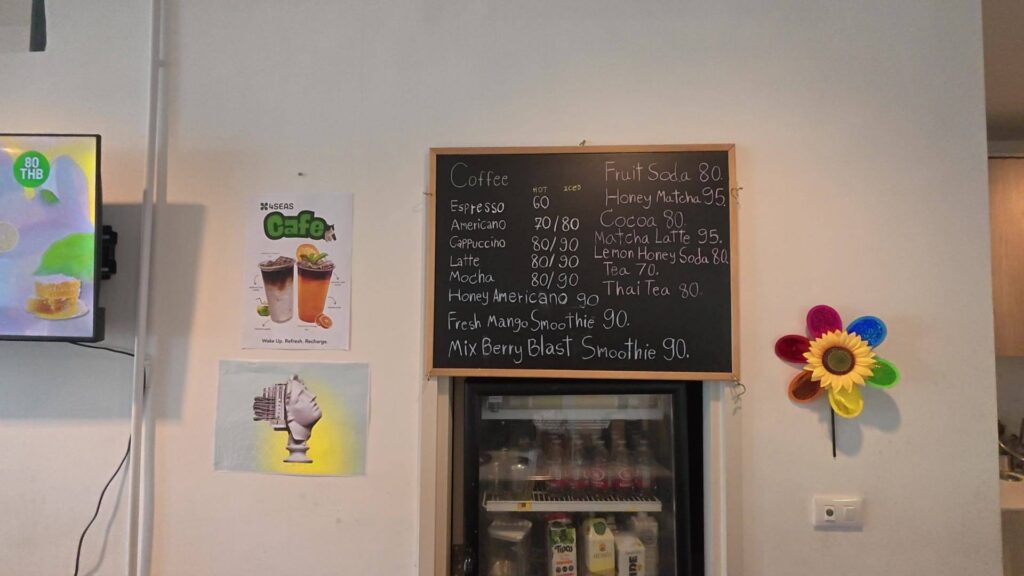 80
THB
4SEAS
Cafe
Wake Up. Refresh. Recharge.
Coffee
HOT ICED
Espresso 60
Americano 70/80
Cappuccino 80/90
Latte 80/90
Mocha 80/90
Honey Americano 90
Fresh Mango Smoothie 90.
Mix Berry Blast Smoothie 90.
Fruit Soda 80.
Honey Matcha 95.
Cocoa 80.
Matcha Latte 95.
Lemon Honey Soda 80.
Tea 70.
Thai Tea 80.